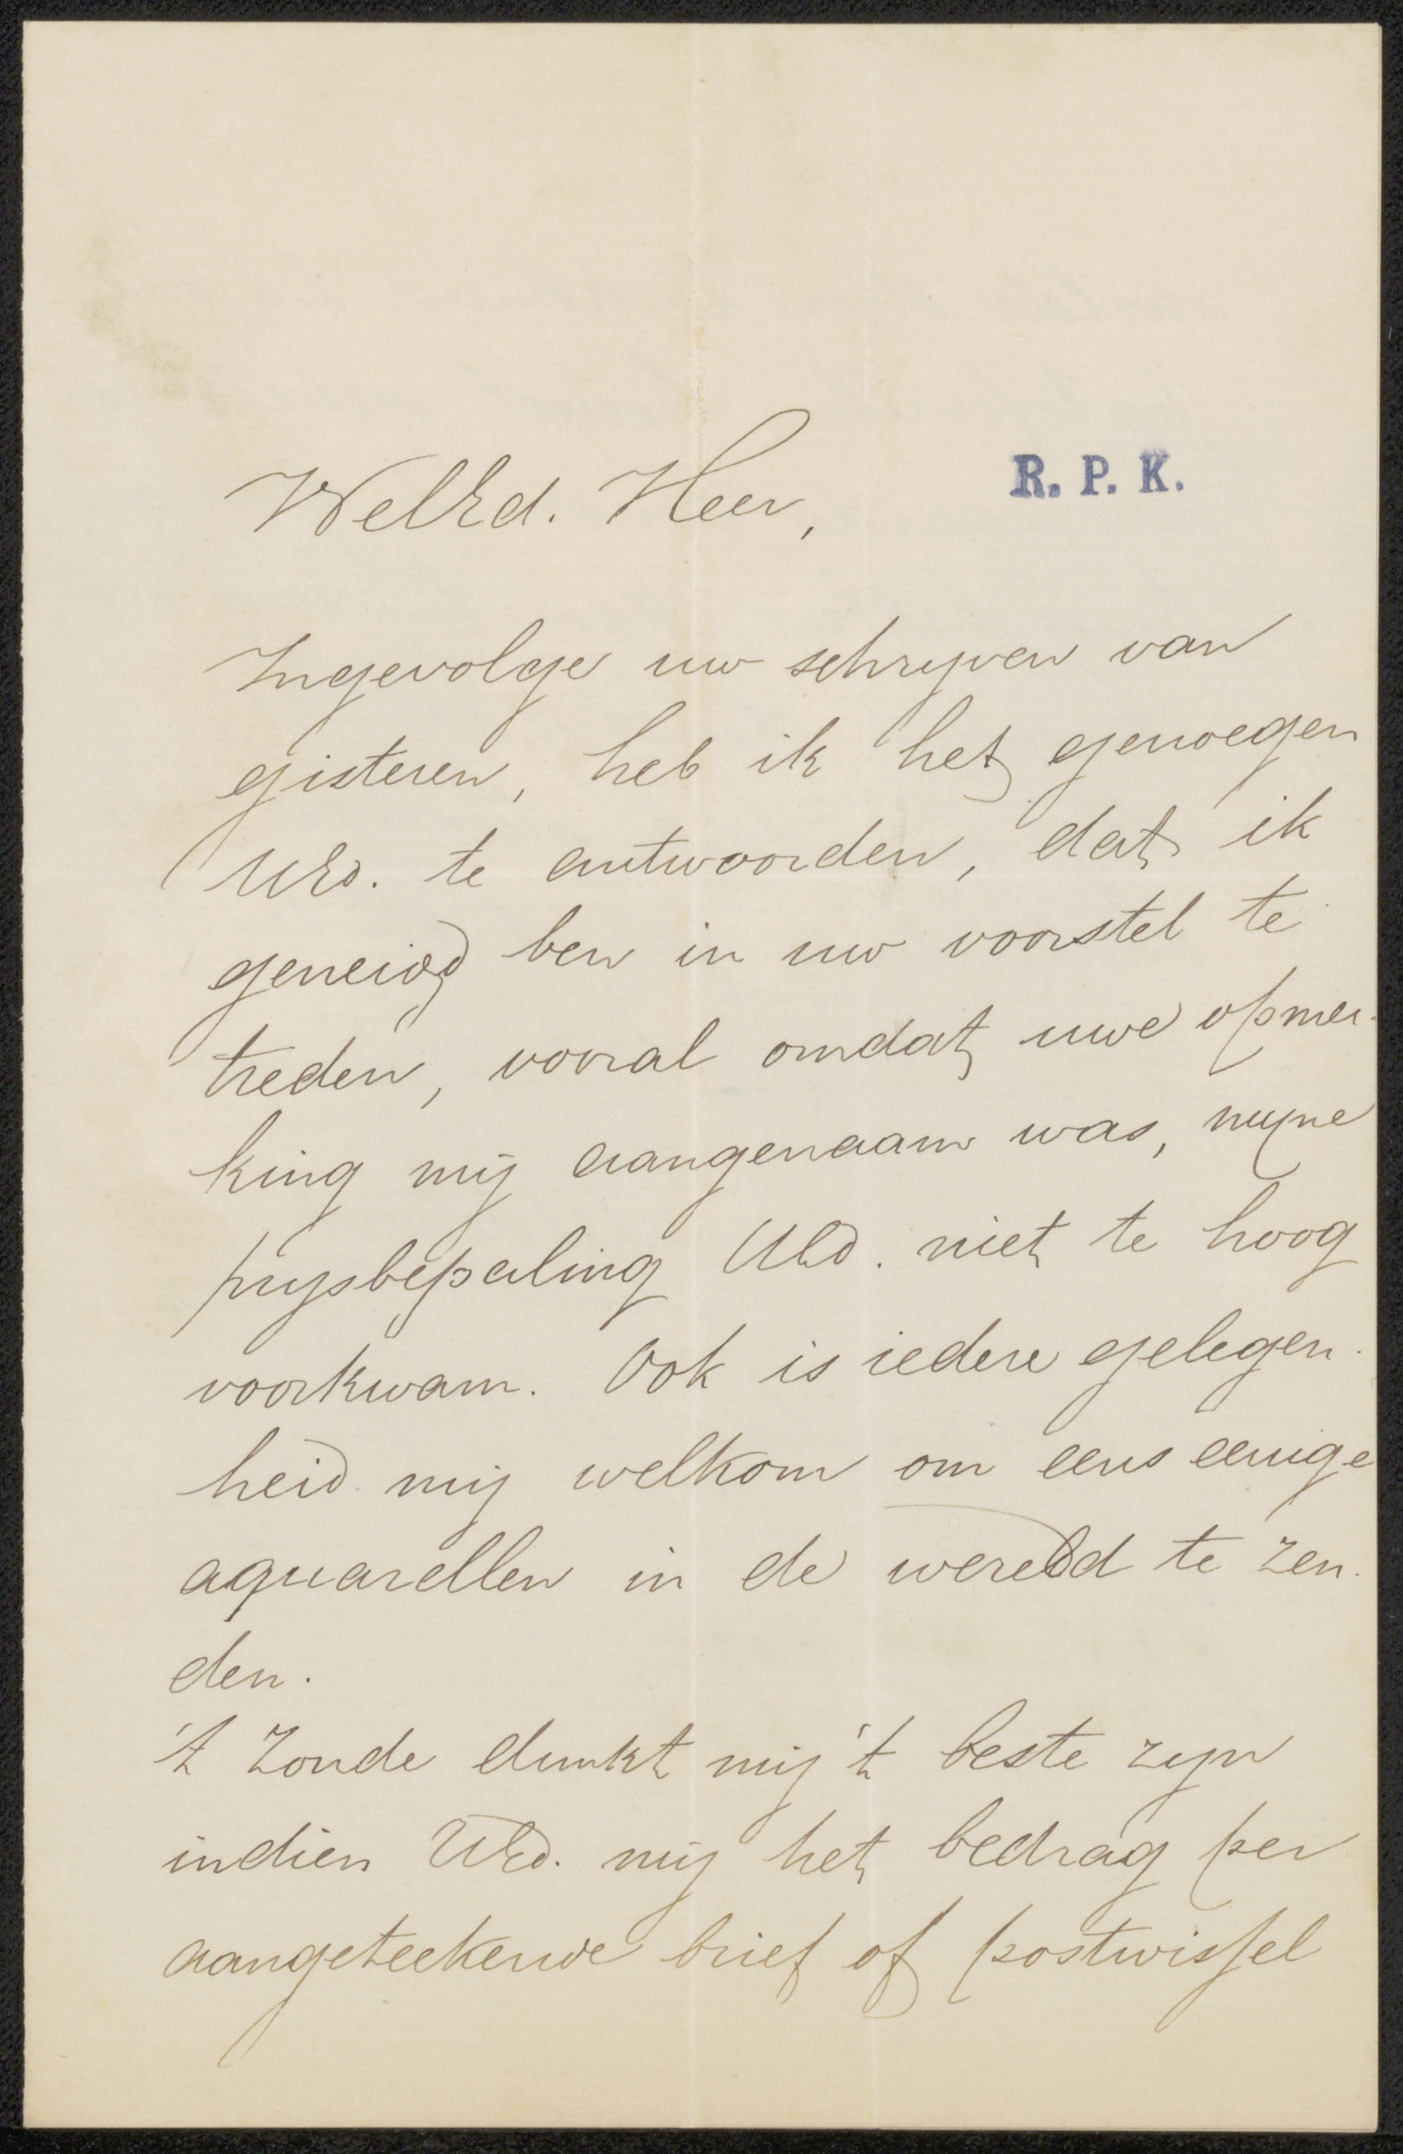 WelEd. Heer,
R. P. K.
Ingevolge uw schrijven van
gisteren, heb ik het genoegen
UEd. te antwoorden, dat ik
geneigd ben in uw voorstel te
treden, vooral omdat uwe opmer-
king mij aangenaam was, mijne
prijsbepaling UEd. niet te hoog
voorkwam. Ook is iedere gelegen-
heid mij welkom om eens eenige
aquarellen in de wereld te zen-
den.
't Zoude dunkt mij 't beste zijn
indien UEd. mij het bedrag per
aangeteekende brief of postwissel